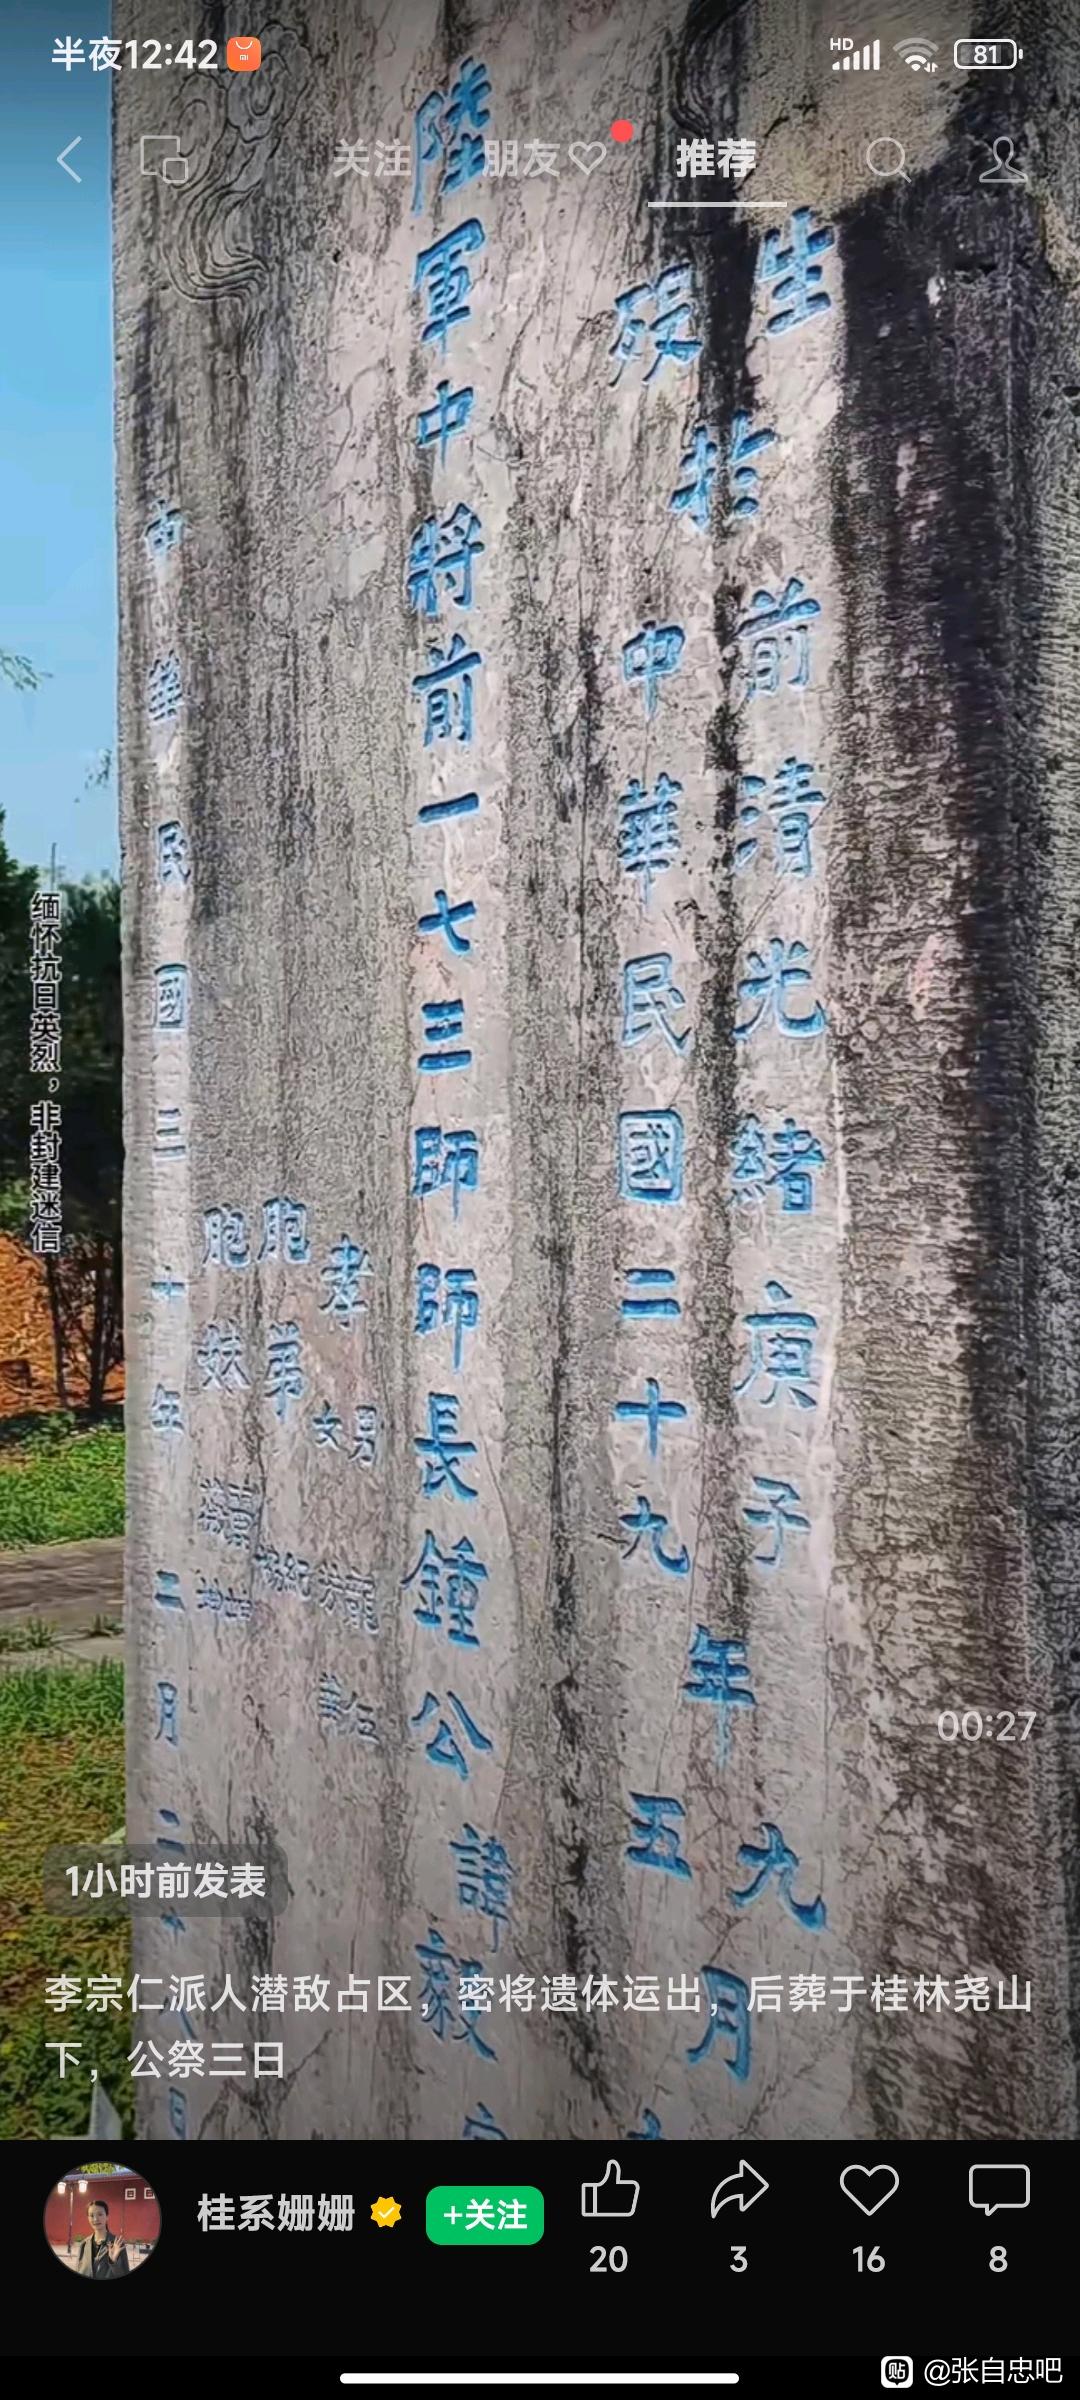 半夜12:42
HD
81
关注
朋友
推荐
生
歿
於
前清光緒庚子
中華民國二十九
年
九月
五
陸軍中將前一七三師師長鍾公
諱毅
孝
男
女
胞弟
胞妹
中華民國三十年二月二十八日
缅怀抗日英烈，非封建迷信
00:27
1小时前发表
李宗仁派人潜敌占区，密将遗体运出，后葬于桂林尧山
下，公祭三日
桂系姗姗
+关注
20
3
16
8
贴 @张自忠吧